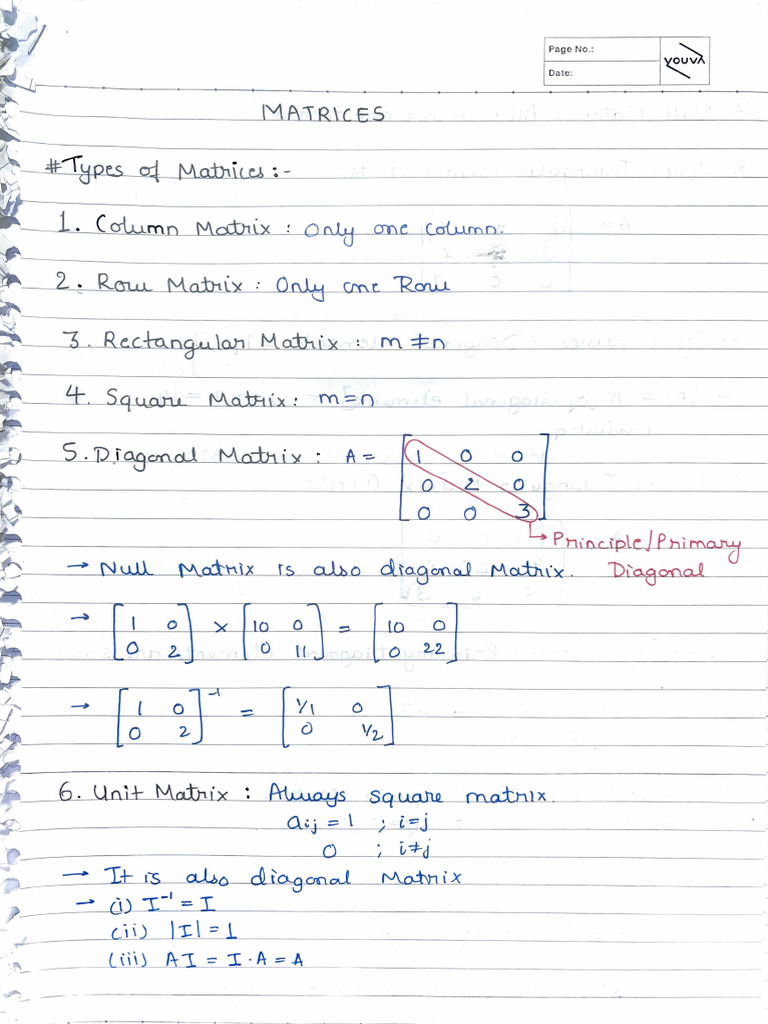 Page No.:
Date:
YOUVA
MATRICES
#Types of Matrices:-
1. Column Matrix : Only one column.
2. Row Matrix : Only one Row
3. Rectangular Matrix : m ≠ n
4. Square Matrix: m = n
5. Diagonal Matrix : A = [ 1 0 0
0 2 0
0 0 3 ]
→ Principle/Primary
Diagonal
→ Null Matrix is also diagonal Matrix.
→ [ 1 0 ] × [ 10 0 ] = [ 10 0 ]
[ 0 2 ] [ 0 11 ] [ 0 22 ]
→ [ 1 0 ]⁻¹ = [ 1/1 0 ]
[ 0 2 ] [ 0 1/2 ]
6. Unit Matrix : Always square matrix.
aij = 1 ; i=j
0 ; i≠j
→ It is also diagonal Matrix
→ (i) I⁻¹ = I
(ii) |I| = 1
(iii) AI = I·A = A